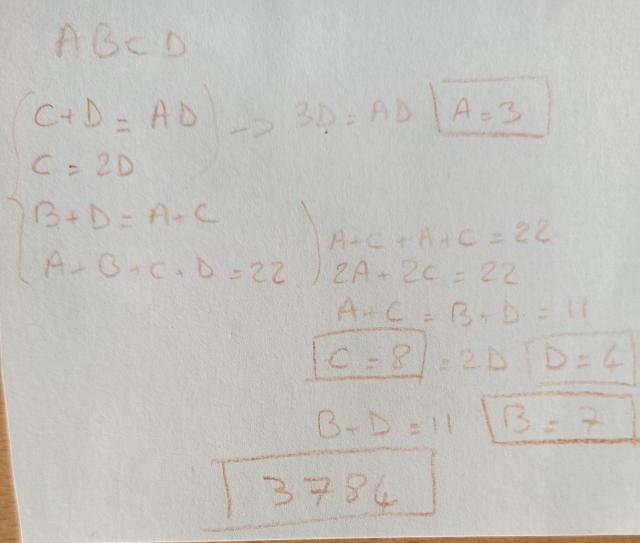 ABCD
C+D = AD -> 3D = AD A = 3
C = 2D
B+D = A+C
A+B+C+D = 22
A+C+A+C = 22
2A+2C = 22
A+C = B+D = 11
C = 8 = 2D D = 4
B+D = 11 B = 7
3784